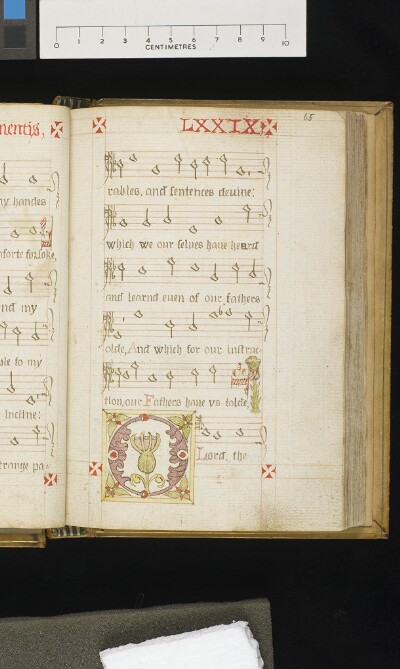 0 1 2 3 4 5 6 7 8 9 10
CENTIMETRES
mentis,
LXXIX
65
my handes
forte for sake,
nd my
ble to my
incline:
trange pa-
rables, and sentences deuine:
which we our selues haue heard
and learnd euen of our fathers
olde, And which for our instruc-
tion, our Fathers haue vs tolde.
O Lord, the